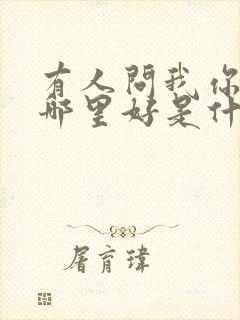 有人問我你
哪里好是什
屠育瑋